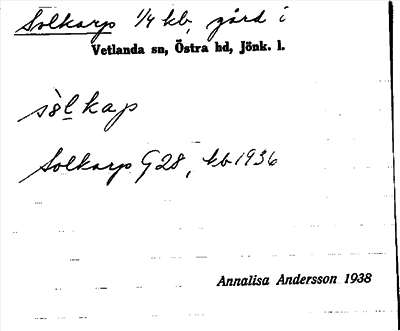 Solkarp 1/4 kb, gård i
Vetlanda sn, Östra hd, Jönk. l.
sòlkap
Solkarp G28, kb 1936
Annalisa Andersson 1938